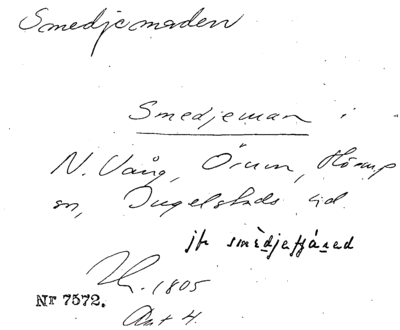 Smedjemaden
Smedjeman i
N. Vång, Örum, Hörup
sn, Ingelstads hd.
jfr smedjefjäred
1805
Akt 4.
Nr 7572.